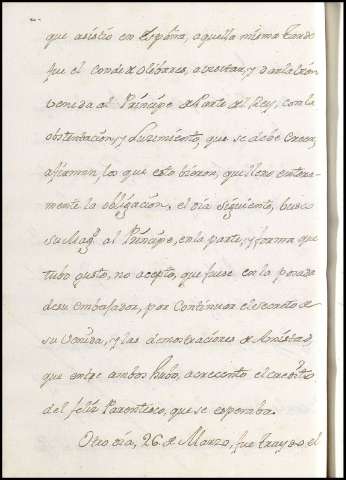 que asistio en España, aquella misma tarde
fue el Conde de Olibares, a visitar, y dar la bien
venida al Príncipe de Parte del Rey, con la
obstentacion, y Lucimiento, que se debe Creer,
afirman, los que esto bieron, que lleno entera-
mente la obligacion, el dia siguiente, busco
su Mag.ᵈ al Príncipe, en la parte, y forma que
tubo gusto, no acepto, que fuese en la posada
de su embajador, por Continuar el secreto de
su Venida, y las demostraciones de Amistad,
que entre ambos hubo, acrecento el credito
del feliz Parentesco, que se esperaba.
Otro dia, 26 de Marzo, fue traydo, el